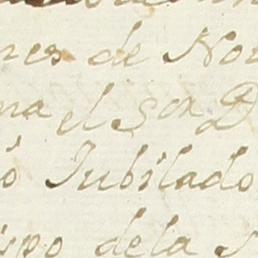 nes de Nov
na el Sor D
ó Jubilado
upo de la